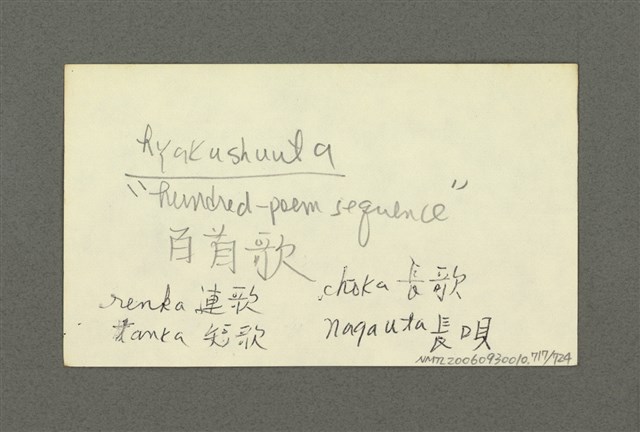 hyakushuuta
"hundred-poem sequence"
百首歌
renka 連歌
choka 長歌
tanka 短歌
nagauta 長唄
NMTL20060930010.717/724